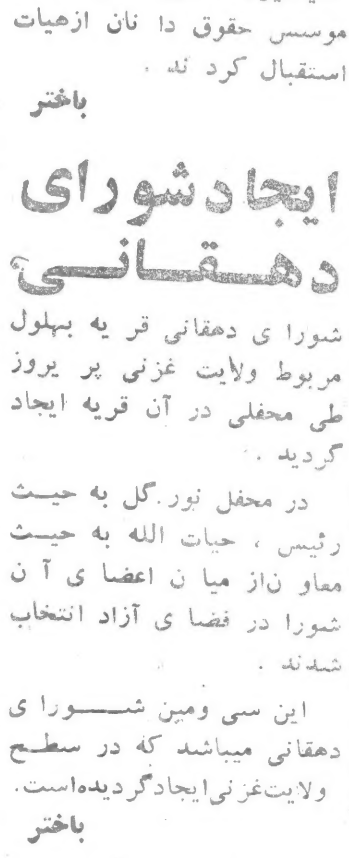 موسس حقوق دا نان ازهیات
استقبال کرد ند .
باختر
ایجادشورای
دهقانی
شورا ی دهقانی قر یه بهلول
مربوط ولایت غزنی پر یروز
طی محفلی در آن قریه ایجاد
گردید .
در محفل نور گل به حیث
رئیس ، حیات الله به حیث
معاو ن از میا ن اعضا ی آ ن
شورا در فضا ی آزاد انتخاب
شدند .
این سی ومین شورا ی
دهقانی میباشد که در سطح
ولایت غزنی ایجادگردیده است.
باختر